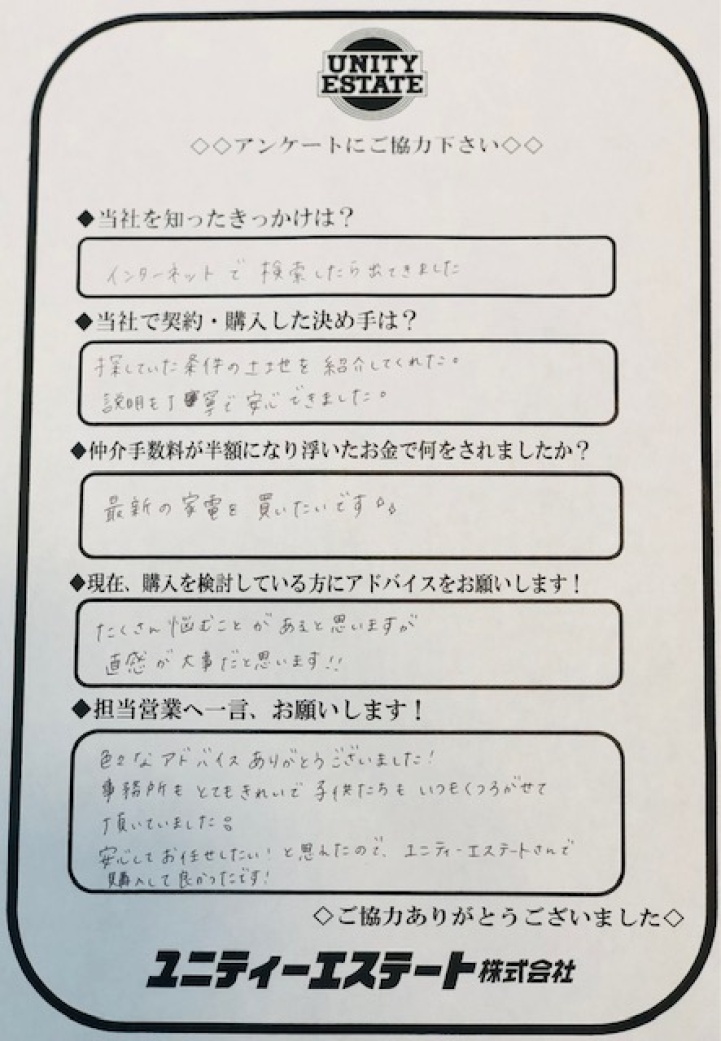 UNITY
ESTATE
◇◇アンケートにご協力下さい◇◇
◆当社を知ったきっかけは？
インターネットで検索したら出てきました
◆当社で契約・購入した決め手は？
探していた条件の土地を紹介してくれた。
説明も丁寧で安心できました。
◆仲介手数料が半額になり浮いたお金で何をされましたか？
最新の家電を買いたいです♪♪
◆現在、購入を検討している方にアドバイスをお願いします！
たくさん悩むことがあると思いますが
直感が大事だと思います!!
◆担当営業へ一言、お願いします！
色々なアドバイスありがとうございました！
事務所もとてもきれいで子供たちもいつもくつろがせて
頂いていました。
安心してお任せしたい！と思えたので、ユニティーエステートさんで
購入して良かったです！
◇ご協力ありがとうございました◇
ユニティーエステート株式会社